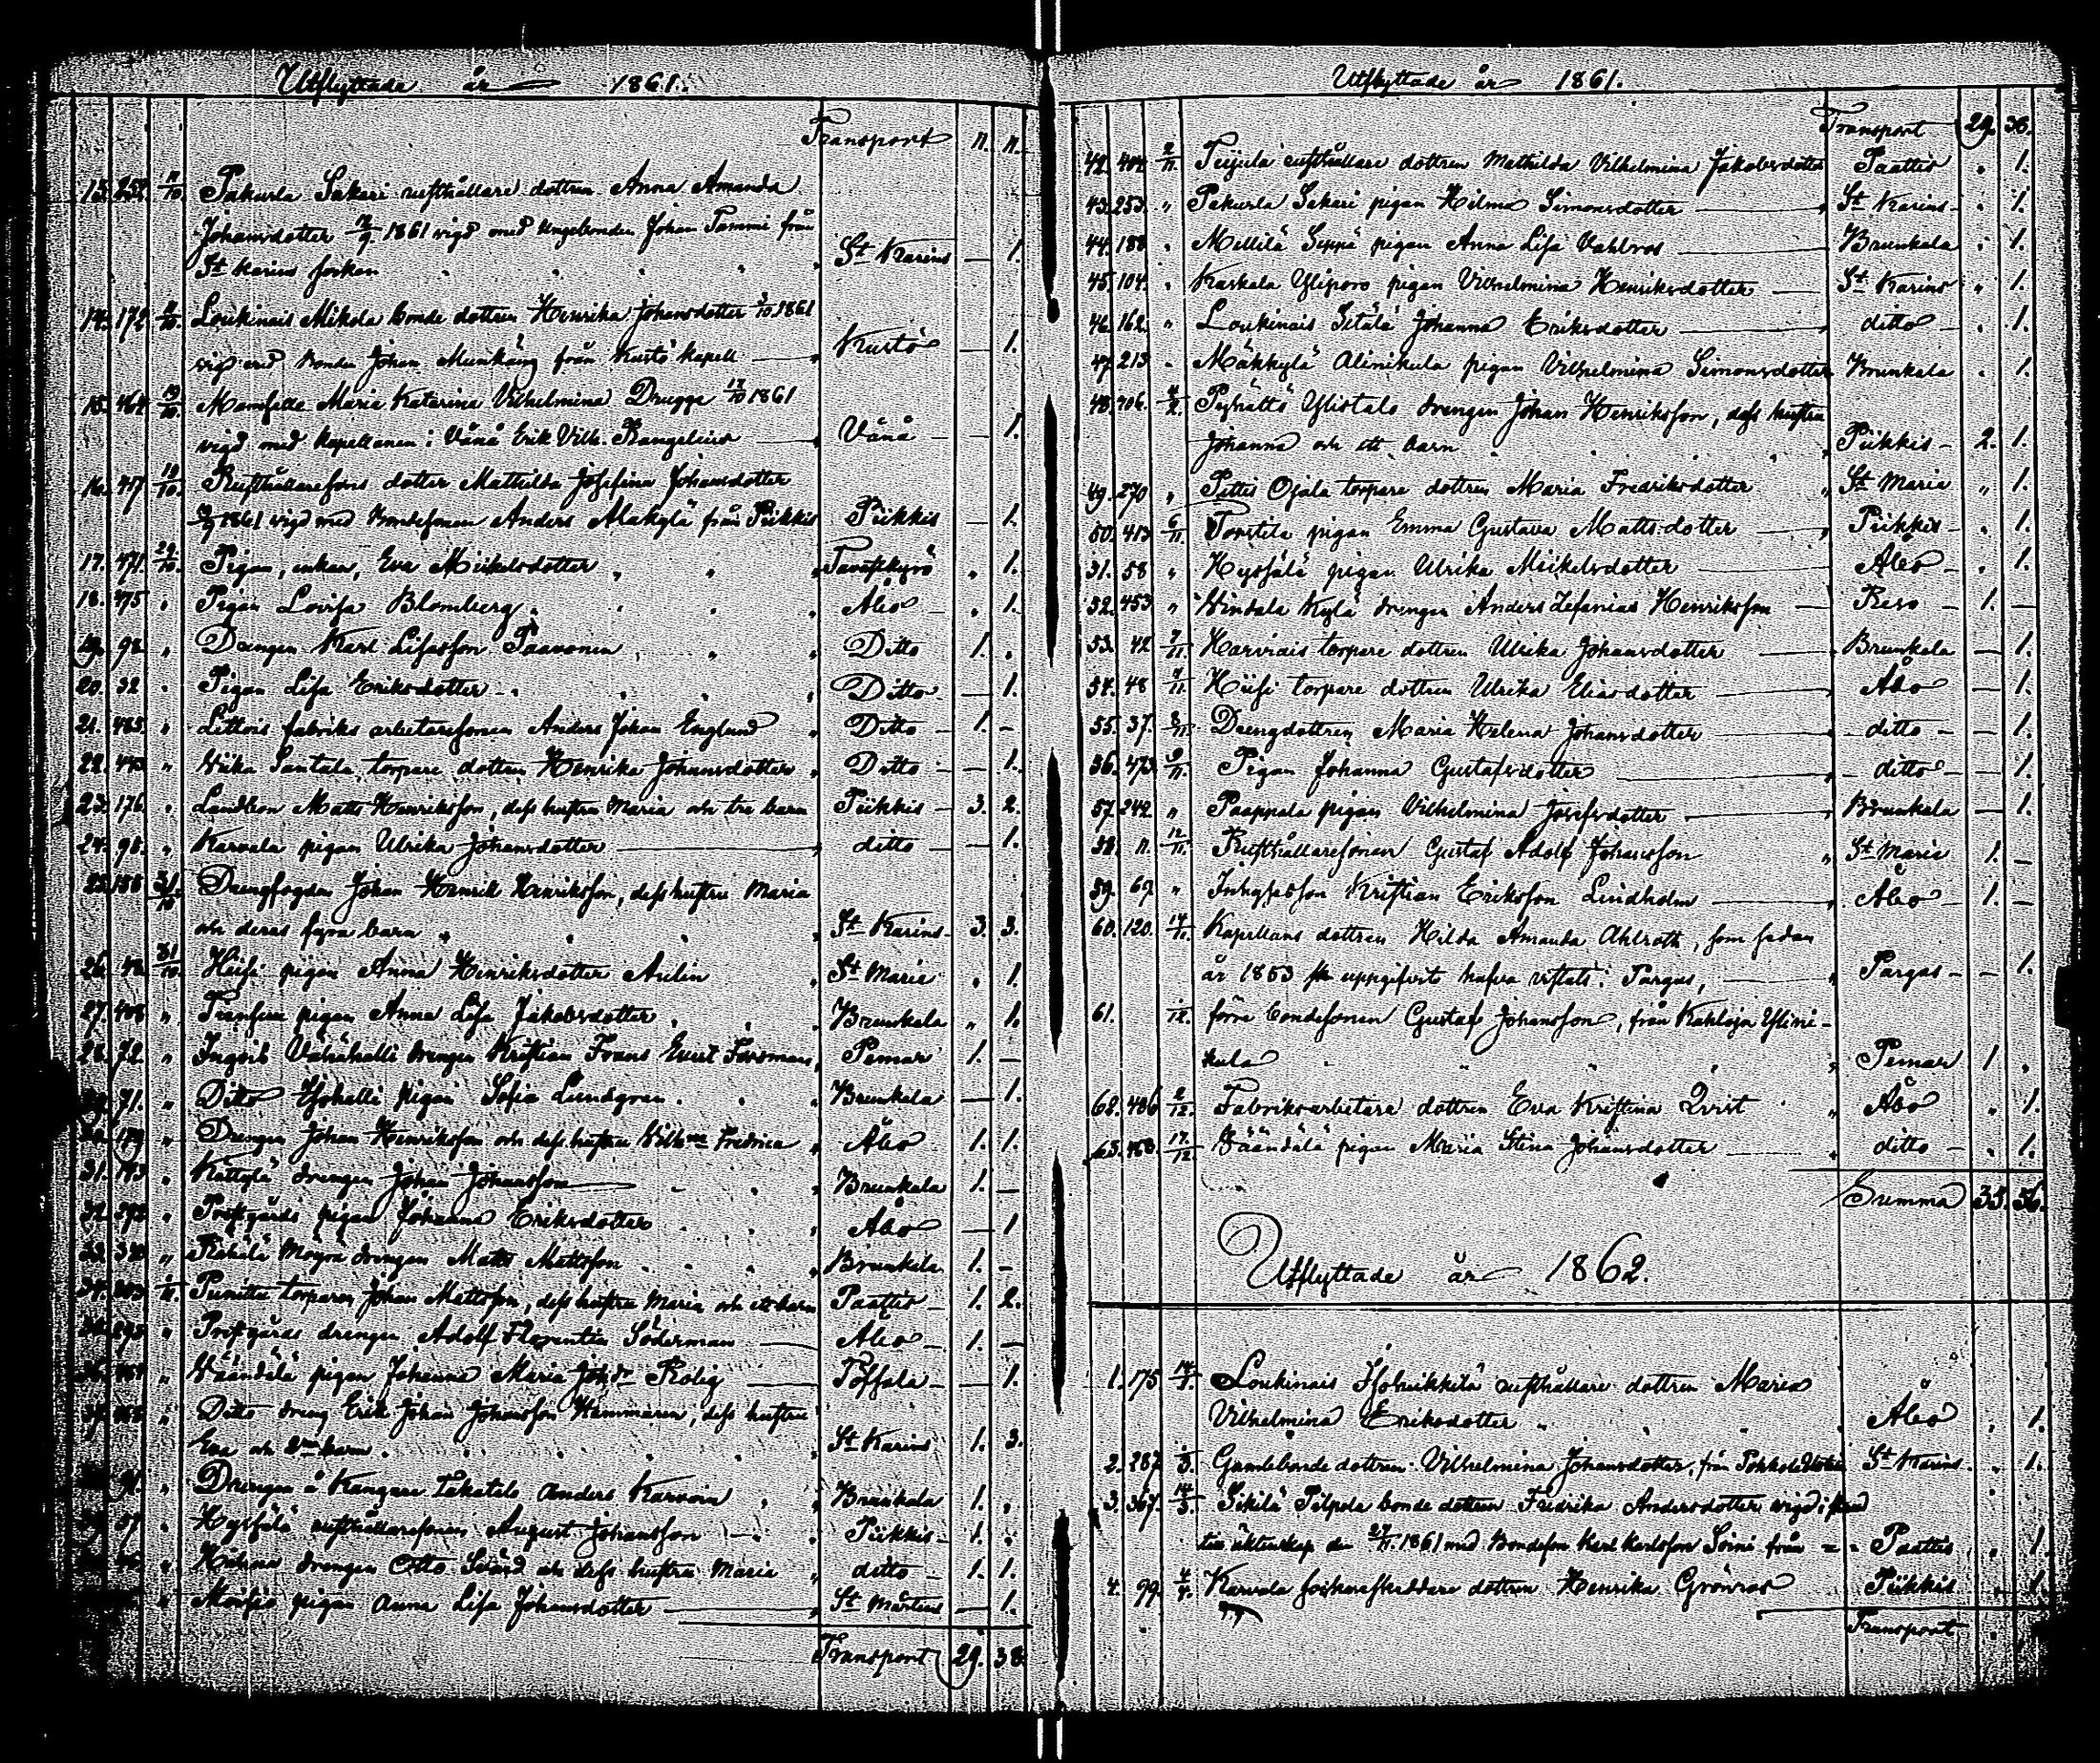 Utflyttade år 1861.
Transport 11. 11.
13. 252. 11/10. Pakurla Sakari rusthållare dottren Anna Amanda
Johansdotter 1861 vigd med Ungebonden Johan Tammi från
St Karins socken St Karins — 1.
14. 172 Loukinais Mikola bonde dottren Henrika Johansdotter 1861
vigd med bonden Johan Munkäng från Kustö Kapell — Kustö — 1.
15. 464 19/10. Mamselle Maria Katarina Vilhelmina Drugge 17/10 1861
vigd med Kapellanen i Vånå Erik Vilh. Rangelius — Vånå — 1.
16. 417 19/10. Rusthållaresons dotter Mathilda Josefina Johansdotter
1861 vigd med bondesonen Anders Alakylä från Piikkis Piikkis — 1.
17. 471. 29/10. Pigan, enkan, Eva Mickelsdotter Tavastkyrö 1.
18. 475 " Pigan Lovisa Blomberg. Åbo — 1.
19. 98. " Drengen Karl Lisasson Paavonen Ditto 1.
20. 32 " Pigan Lisa Eriksdotter Ditto — 1.
21. 485. " Littois fabriks arbetaresonen Anders Johan Englund Ditto — 1. —
22. " Wiika Santala torpare dottren Henrika Johansdotter Ditto — 1.
23. 176. " Landbon Matts Henriksson, dess hustru Maria och tre barn Piikkis — 3. 2.
24. 98. " Karvala pigan Ulrika Johansdotter ditto — 1.
25. 188 31/10 Drengfogden Johan Henrik Henriksson, dess hustru Maria
och deras fyra barn St Karins 3. 3.
26. 48. 31/10. Hiisi pigan Anna Henriksdotter Aulin St Marie 1.
27. 408 " pigan Anna Lisa Jakobsdotter Brunkala 1.
28. 72. " Ingois Vähähalli drengen Kristian Frans Evert Forsman Pemar 1. —
29. 71. " Ditto Isohalli pigan Sofia Lundgren. Brunkala — 1.
30. 179 " Drengen Johan Henriksson och dess hustru Vilh:na Fredrica Åbo 1. 1.
31. 193 " Kättylä drengen Johan Johansson Brunkala 1. —
32. " Prostgårds pigan Johanna Eriksdotter Åbo — 1
33. " drengen Matts Mattsson Brunkala 1. —
34. torparen Johan Mattsson, dess hustru Maria och ett barn Paattis — 1. 2.
" Prostgårds drengen Adolf Florentin Söderman Åbo — 1. —
" Väändälä pigan Johanna Maria Johdr Rolig Poffala — 1.
" Ditto dreng Erik Johan Johansson Hammaren, dess hustru
Eva och 2ne barn. St Karins 1. 3.
" Drengen å Kangare Lakatalo Anders Karvoin Brunkala 1.
37 " Hyssälä rusthållaresonen August Johansson Piikkis 1.
" drengen Otto Svärd och dess hustru Maria ditto 1. 1.
" Moisio pigan Anna Lisa Johansdotter St Mårtens — 1.
Transport 29. 38.
Utflyttade år 1861.
Transport 29. 38.
42. 404 2/11. Tujula rusthållare dottren Mathilda Vilhelmina Jakobsdotter Paattis 1.
43. 253. " Pakurla Sakari pigan Hilma Simonsdotter St Karins 1.
44. 188 " Mellilä Seppä pigan Anna Lisa Vahlroos Brunkala 1.
45. 104. " Kaskala Yliporo pigan Vilhelmina Henriksdotter St Karins 1.
46. 162. " Loukinais Sitälä Johanna Eriksdotter ditto 1.
47. 213 " Mäkkylä Alinikula pigan Vilhelmina Simonsdotter Brunkala 1.
48. 406. Pyhältö Ylistalo drengen Johan Henriksson, dess hustru
Johanna och ett barn Piikkis — 2. 1.
49. 270 " Pittis Ojala torpare dottren Maria Fredriksdotter St Maria " 1.
50. 413 6/11 Tonttila pigan Emma Gustava Mattsdotter Piikkis 1.
51. 58 " Hyssälä pigan Ulrika Mickelsdotter Åbo 1.
52. 453. " Hindala Kylä drengen Anders Zefanias Henriksson Reso — 1. —
53. 42 7/11. Harviais torpare dottren Ulrika Johansdotter Brunkala — 1.
54. 48 7/11. Hiisi torpare dottren Ulrika Eliasdotter Åbo — 1.
55. 37. 8/11. Drengdottren Maria Helena Johansdotter ditto — 1.
56. 473 9/11. Pigan Johanna Gustafsdotter ditto — 1.
57. 242. " Paappala pigan Vilhelmina Josefsdotter Brunkala — 1.
58. 11. 12/11. Rusthållaresonen Gustaf Adolf Johansson St Marie 1. —
59. 69 " Inhysesson Kristian Eriksson Lindholm Åbo 1. —
60. 120. 14/11. Kapellans dottren Hilda Amanda Ahlroth, som sedan
år 1853 uppgifvits hafva vistats i Pargas, Pargas — — 1.
61. förre bondesonen Gustaf Johansson, från Kahloja Ylini-
kula Pemar 1
62. 486 2/12. Fabriksarbetare dottren Eva Kristina Qvist Åbo 1.
63. 468. 17/12 Väändälä pigan Maria Stina Johansdotter ditto 1.
Summa 35. 56.
Utflyttade år 1862.
1. 175 14/1. Loukinais Isoheikkilä rusthållare dottren Maria
Vilhelmina Eriksdotter Åbo 1.
2. 287 Gamlebonde dottren Vilhelmina Johansdotter, från St Karins 1.
3. 367. 14/3. Sikilä Pilpola bonde dottren Fredrika Andersdotter vigd i
äktenskap den 27/11. 1861 med Bondeson Karl Karlsson Soini från Paattis 1.
4. 99. 4/4. Karvala sockneskräddare dottren Henrika Grönroos Piikkis 1.
Transport